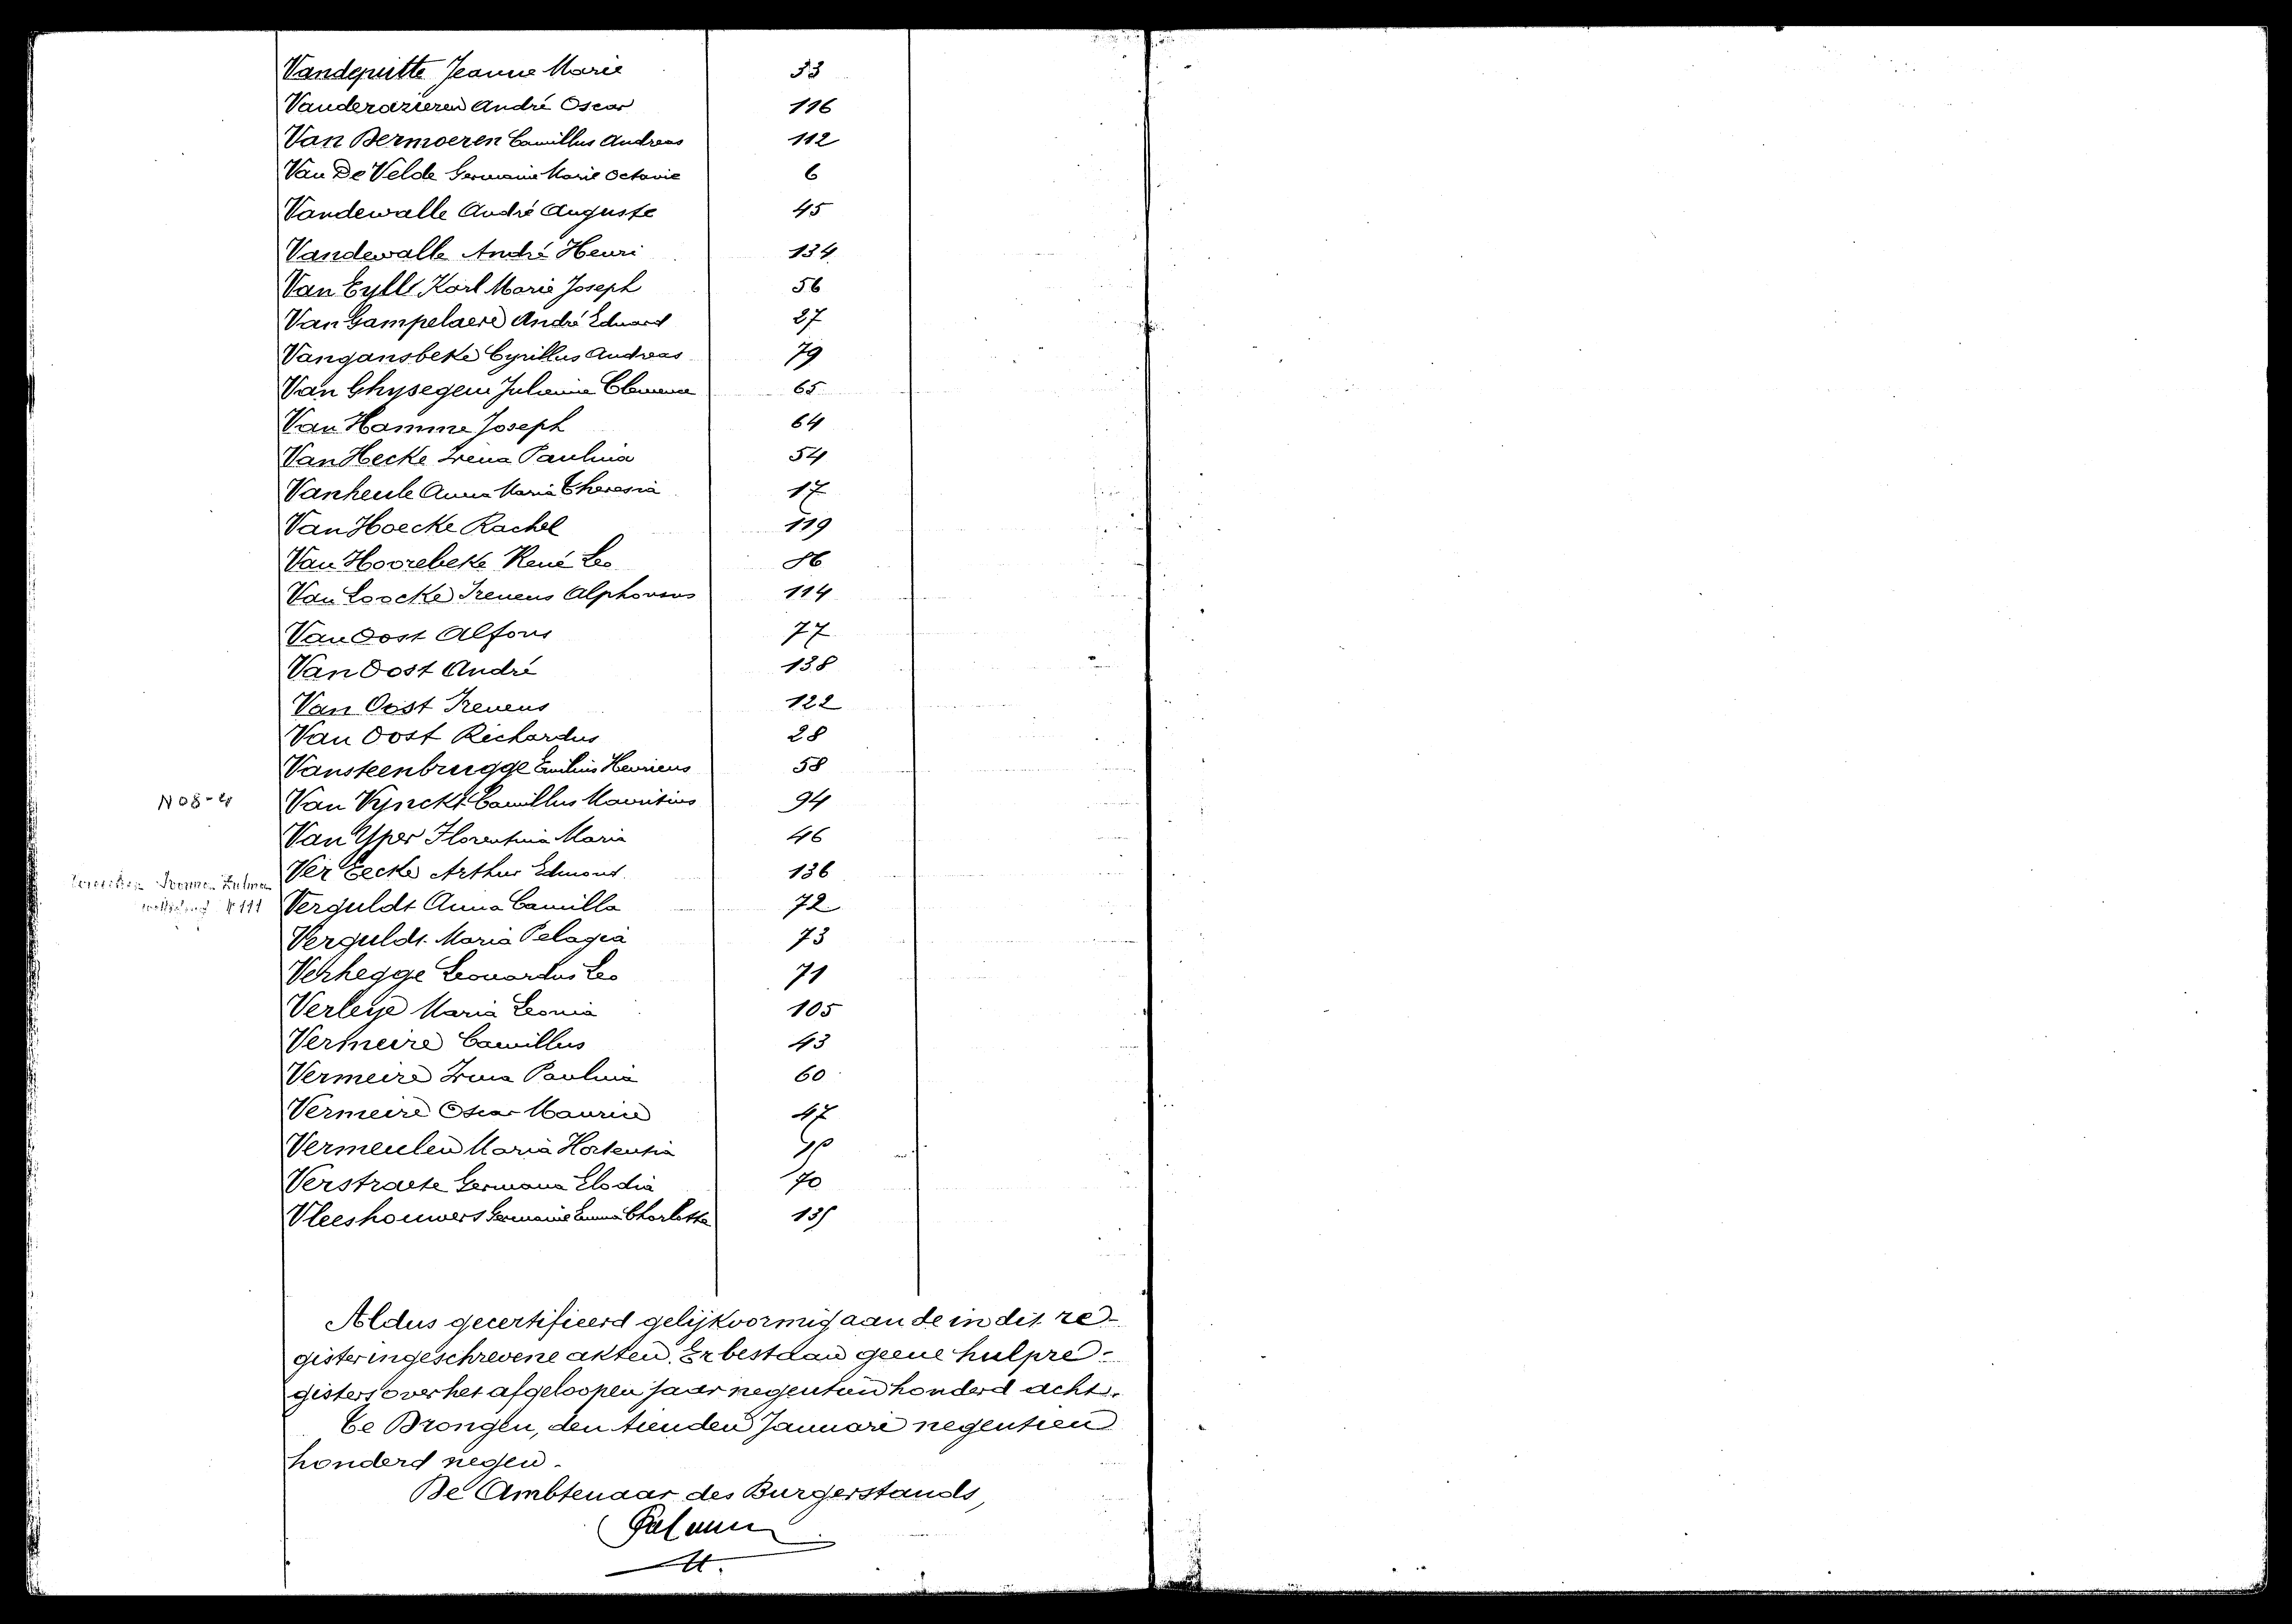 Vandeputte Jeanne Marie 33
Vanderazieren André Oscar 116
Van Dermoeren Camillus Andreas 112
Van De Velde Germanie Marie Octavie 6
Vandewalle André Auguste 45
Vandewalle André Henri 134
Van Eylle Karl Marie Joseph 56
Van Gampelaere André Eduard 27
Vangansbeke Cyrillus Andreas 79
Van Ghysegem Julienna Clemence 65
Van Hamme Joseph 64
Van Hecke Irena Paulina 54
Vanheule Anna Maria Theresia 17
Van Hoecke Rachel 119
Van Hoorebeke René Leo 86
Van Loocke Ireneus Alphonsus 114
Van Oost Alfons 77
Van Oost André 138
Van Oost Ireneus 122
Van Oost Richardus 28
Vansteenbrugge Emilius Henricus 58
N 08-4 Van Vynckt Camillus Mauritius 94
Van Yper Florentina Maria 46
Ver Eecke Arthur Edmond 136
Yvonne Zulma
N 111
Verguldt Anna Camilla 72
Verguldt Maria Pelagia 73
Verhegge Leonardus Leo 71
Verleye Maria Leonia 105
Vermeire Camillus 43
Vermeire Irma Paulina 60
Vermeire Oscar Maurice 47
Vermeulen Maria Hortensia
Verstraete Germana Elodia 70
Vleeshouwers Germanie Emma Charlotte 135
Aldus gecertifieerd gelijkvormig aan de in dit re-
gister ingeschrevene akten. Er bestaan geene hulpre-
gisters over het afgeloopen jaar negentien honderd acht.
Te Drongen, den tienden Januari negentien
honderd negen.
De Ambtenaar des Burgerstands,